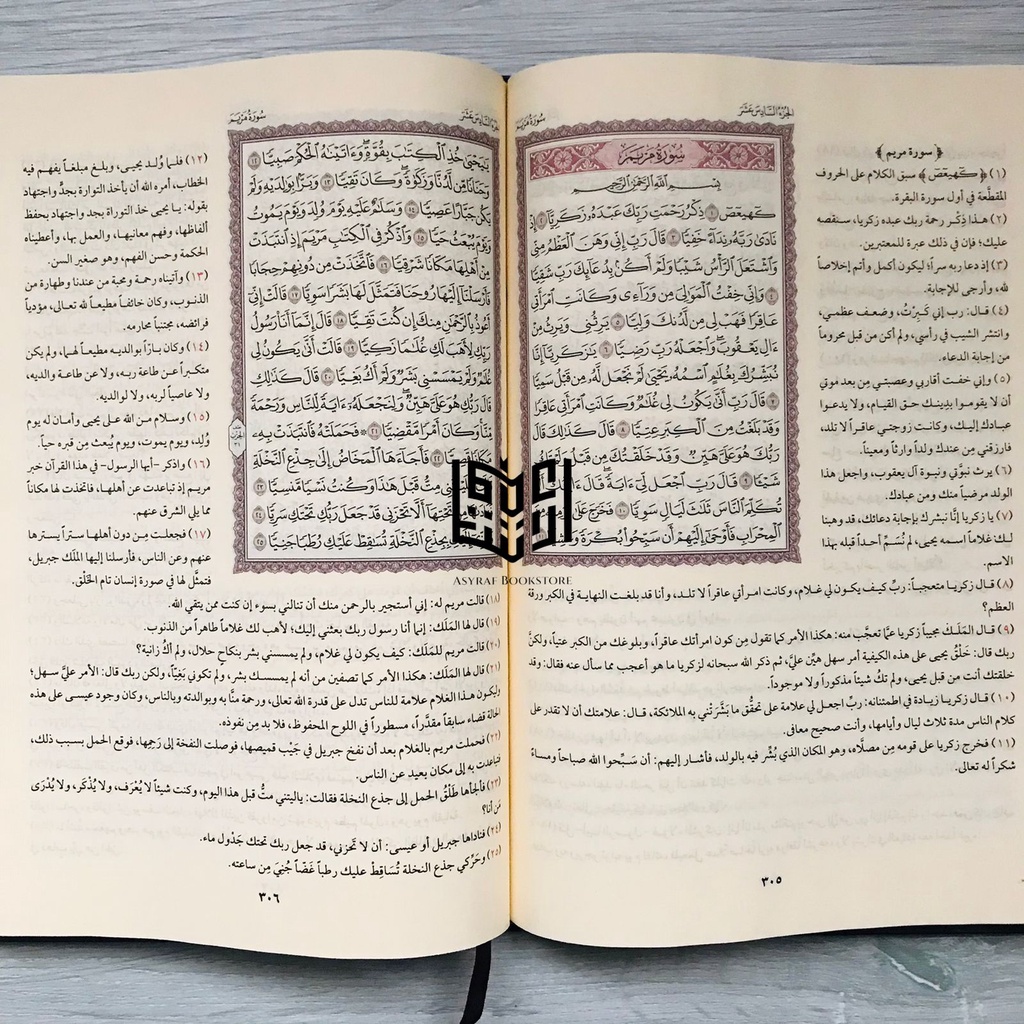 الجزء السادس عشر
سورة مريم
سورة مريم
بسم الله الرحمن الرحيم
كهيعص ١ ذكر رحمت ربك عبده زكريا ٢ إذ
نادى ربه نداء خفيا ٣ قال رب إني وهن العظم مني
واشتعل الرأس شيبا ولم أكن بدعائك رب شقيا
٤ وإني خفت الموالي من وراءي وكانت امرأتي
عاقرا فهب لي من لدنك وليا ٥ يرثني ويرث من
ءال يعقوب واجعله رب رضيا ٦ يزكريا إنا
نبشرك بغلم اسمه يحيى لم نجعل له من قبل سميا
٧ قال رب أنى يكون لي غلم وكانت امرأتي عاقرا
وقد بلغت من الكبر عتيا ٨ قال كذلك قال
ربك هو علي هين وقد خلقتك من قبل ولم تك
شيئا ٩ قال رب اجعل لي ءاية قال ءايتك ألا
تكلم الناس ثلث ليال سويا ١٠ فخرج على قومه من
المحراب فأوحى إليهم أن سبحوا بكرة وعشيا
﴿سورة مريم﴾
(١) ﴿كهيعص﴾ سبق الكلام على الحروف
المقطَّعة في أول سورة البقرة.
(٢) هذا ذِكْر رحمة ربك عبده زكريا، سنقصه
عليك؛ فإن في ذلك عبرة للمعتبرين.
(٣) إذ دعا ربه سراً؛ ليكون أكمل وأتم إخلاصاً
لله، وأرجى للإجابة.
(٤) قال: رب إني كَبِرْتُ، وضعف عظمي،
وانتشر الشيب في رأسي، ولم أكن من قبل محروماً
من إجابة الدعاء.
(٥) وإني خفت أقاربي وعصبتي مِن بعد موتي
أن لا يقوموا بدينك حق القيام، ولا يدعوا
عبادك إليك، وكانت زوجتي عاقراً لا تلد،
فارزقني مِن عندك ولداً وارثاً ومعيناً.
(٦) يرث نبوَّتي ونبوة آل يعقوب، واجعل هذا
الولد مرضياً منك ومن عبادك.
(٧) يا زكريا إنَّا نبشرك بإجابة دعائك، قد وهبنا
لك غلاماً اسمه يحيى، لم نُسَمِّ أحداً قبله بهذا
الاسم.
(٨) قال زكريا متعجباً: ربِّ كيف يكون لي غلام، وكانت امرأتي عاقراً لا تلد، وأنا قد بلغت النهاية في الكبر ورقة
العظم؟
(٩) قال المَلَك مجيباً زكريا عمَّا تعجَّب منه: هكذا الأمر كما تقول مِن كون امرأتك عاقراً، وبلوغك من الكبر عتياً، ولكنَّ
ربك قال: خَلْقُ يحيى على هذه الكيفية أمر سهل هيِّن عليَّ، ثم ذكر الله سبحانه لزكريا ما هو أعجب مما سأل عنه فقال: وقد
خلقتك أنت من قبل يحيى، ولم تكُ شيئاً مذكوراً ولا موجوداً.
(١٠) قال زكريا زيادة في اطمئنانه: ربِّ اجعل لي علامة على تحقُّق ما بَشَّرَتْني به الملائكة، قال: علامتك أن لا تقدر على
كلام الناس مدة ثلاث ليال وأيامها، وأنت صحيح معافى.
(١١) فخرج زكريا على قومه مِن مصلَّاه، وهو المكان الذي بُشِّر فيه بالولد، فأشار إليهم: أن سَبِّحوا الله صباحاً ومساءً
شكراً له تعالى.
٣٠٥
الجزء السادس عشر
سورة مريم
ييحيى خذ الكتب بقوة وءاتينه الحكم صبيا ١٢
وحنانا من لدنا وزكوة وكان تقيا ١٣ وبرا بولديه ولم
يكن جبارا عصيا ١٤ وسلم عليه يوم ولد ويوم يموت
ويوم يبعث حيا ١٥ واذكر في الكتب مريم إذ انتبذت
من أهلها مكانا شرقيا ١٦ فاتخذت من دونهم حجابا
فأرسلنا إليها روحنا فتمثل لها بشرا سويا ١٧ قالت إني
أعوذ بالرحمن منك إن كنت تقيا ١٨ قال إنما أنا رسول
ربك لأهب لك غلما زكيا ١٩ قالت أنى يكون لي
غلم ولم يمسسني بشر ولم أك بغيا ٢٠ قال كذلك
قال ربك هو علي هين ولنجعله ءاية للناس ورحمة
منا وكان أمرا مقضيا ٢١ فحملته فانتبذت به
مكانا قصيا ٢٢ فأجاءها المخاض إلى جذع النخلة
مت قبل هذا وكنت نسيا منسيا ٢٣
تحتها ألا تحزني قد جعل ربك تحتك سريا ٢٤
بجذع النخلة تسقط عليك رطبا جنيا ٢٥
(١٢) فلما وُلد يحيى، وبلغ مبلغاً يفهم فيه
الخطاب، أمره الله أن يأخذ التوارة بجدٍّ واجتهاد
بقوله: يا يحيى خذ التوراة بجد واجتهاد بحفظ
ألفاظها، وفهم معانيها، والعمل بها، وأعطيناه
الحكمة وحسن الفهم، وهو صغير السن.
(١٣) وآتيناه رحمة ومحبة من عندنا وطهارة من
الذنوب، وكان خائفاً مطيعاً لله تعالى، مؤدياً
فرائضه، مجتنباً محارمه.
(١٤) وكان بارّاً بوالديه مطيعاً لهما، ولم يكن
متكبراً عن طاعة ربه، ولا عن طاعة والديه،
ولا عاصياً لربه، ولا لوالديه.
(١٥) وسلام من الله على يحيى وأمان له يوم
وُلِد، ويوم يموت، ويوم يُبعث مِن قبره حياً.
(١٦) واذكر -أيها الرسول- في هذا القرآن خبر
مريم إذ تباعدت عن أهلها، فاتخذت لها مكاناً
مما يلي الشرق عنهم.
(١٧) فجعلت مِن دون أهلها ستراً يسترها
عنهم وعن الناس، فأرسلنا إليها الملَك جبريل،
فتمثَّل لها في صورة إنسان تام الخَلْق.
(١٨) قالت مريم له: إني أستجير بالرحمن منك أن تنالني بسوء إن كنت ممن يتقي الله.
(١٩) قال لها المَلَك: إنما أنا رسول ربك بعثني إليك؛ لأهب لك غلاماً طاهراً من الذنوب.
(٢٠) قالت مريم للمَلَك: كيف يكون لي غلام، ولم يمسسني بشر بنكاحٍ حلال، ولم أكُ زانية؟
(٢١) قال لها المَلَك: هكذا الأمر كما تصفين من أنه لم يمسسك بشر، ولم تكوني بَغِيّاً، ولكن ربك قال: الأمر عليَّ سهل؛
وليكون هذا الغلام علامة للناس تدل على قدرة الله تعالى، ورحمة منَّا به وبوالدته وبالناس، وكان وجود عيسى على هذه
الحالة قضاء سابقاً مقدَّراً، مسطوراً في اللوح المحفوظ، فلا بد مِن نفوذه.
(٢٢) فحملت مريم بالغلام بعد أن نفخ جبريل في جَيْب قميصها، فوصلت النفخة إلى رَحِمِها، فوقع الحمل بسبب ذلك،
فتباعدت به إلى مكان بعيد عن الناس.
(٢٣) فألجأها طَلْقُ الحمل إلى جذع النخلة فقالت: ياليتني متُّ قبل هذا اليوم، وكنت شيئاً لا يُعْرَف، ولا يُذْكَر، ولا يُدْرَى
مَن أنا؟
(٢٤) فناداها جبريل أو عيسى: أن لا تَحزني، قد جعل ربك تحتك جَدْول ماء.
(٢٥) وحَرِّكي جذع النخلة تُسَاقِطْ عليك رطباً غَضّاً جُنِيَ مِن ساعته.
٣٠٦
ASYRAF BOOKSTORE